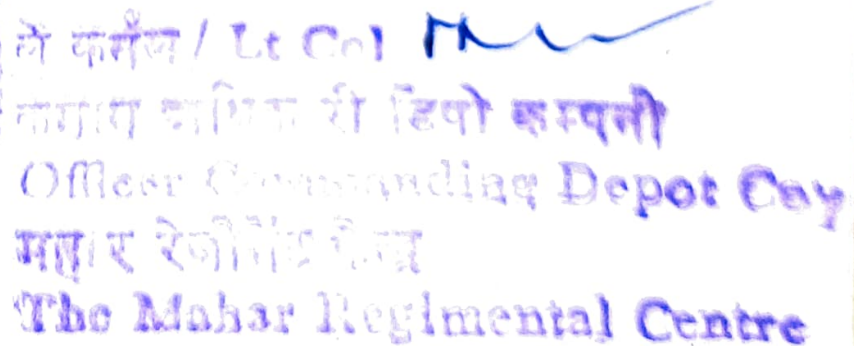 ले कर्नल / Lt Col
कमान अधिकारी डिपो कम्पनी
Officer Commanding Depot Coy
महार रेजीमेंट केन्द्र
The Mahar Regimental Centre